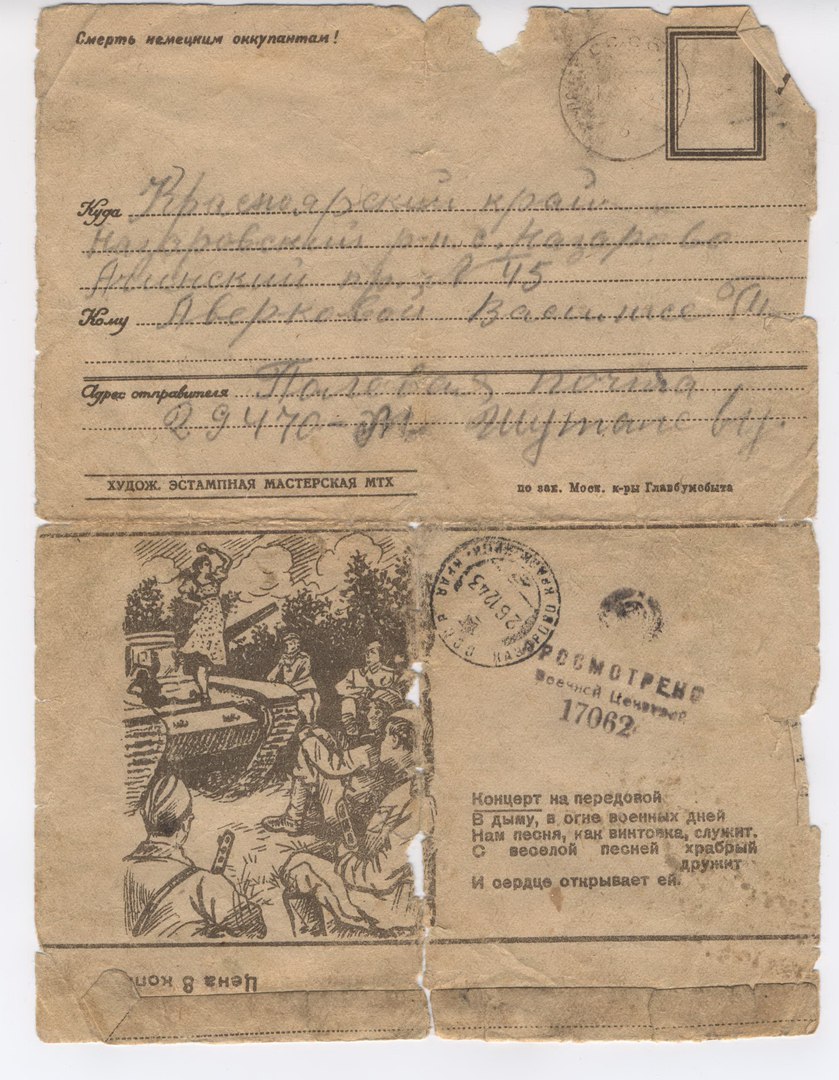 Смерть немецким оккупантам!
СССР
Куда Красноярский край
Назаровский р-н. с. Назарово
Ачинский 45
Кому Аверковой
Адрес отправителя Полевая почта
29470-
ХУДОЖ. ЭСТАМПНАЯ МАСТЕРСКАЯ МТХ
по зак. Моск. к-ры Главбумсбыта
СССР НАЗАРОВО КРАСНОЯР. КРАЯ
26 12 43
ПРОСМОТРЕНО
Военной Цензурой
17062
Концерт на передовой
В дыму, в огне военных дней
Нам песня, как винтовка, служит.
С веселой песней храбрый
дружит
И сердце открывает ей.
Цена 8 коп